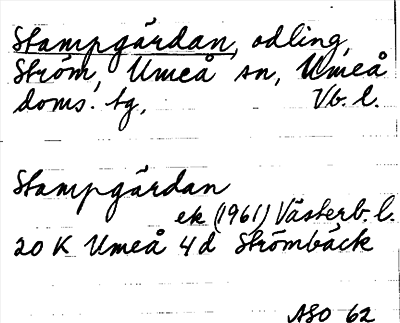 Stampgärdan, odling,
Ström, Umeå sn, Umeå
doms. tg, Vb. l.
Stampgärdan
ek (1961) Västerb. l.
20 K Umeå 4d Strömbäck
ASO 62